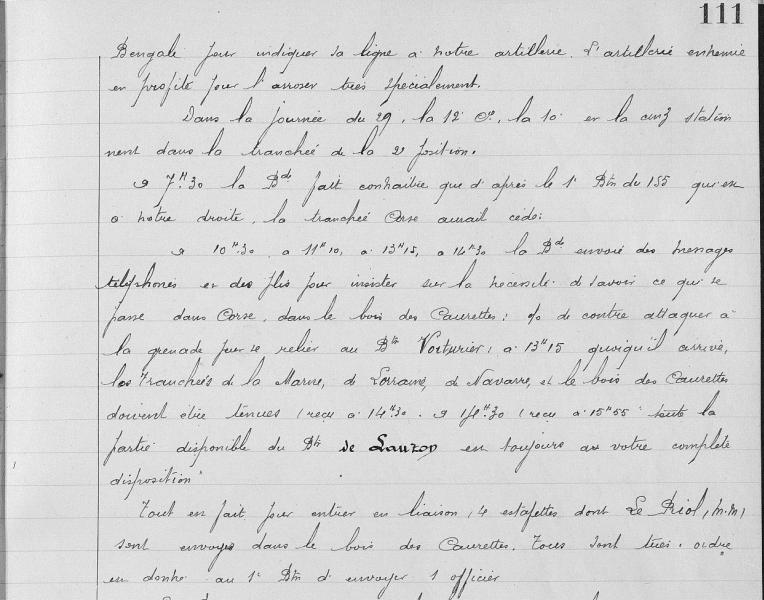 111
Bengale pour indiquer sa ligne à notre artillerie. L'artillerie ennemie
en profite pour l'arroser très spécialement.
Dans la journée du 29, la 12e Cie, la 10 et la cinq station
nent dans la tranchée de la 2e position.
à 7H30 la Bde fait connaître que d'après le 1e Btn du 155 qui est
à notre droite, la tranchée Corse aurait cédé:
à 10H30, à 11H10, à 13H15, à 14H30 la Bde envoie des messages
téléphonés et des plis pour insister sur la nécessité de savoir ce qui se
passe dans Corse, dans le bois des Caurettes; de contre attaquer à
la grenade pour se relier au Btn Voiturier; à 13H15 quoiqu'il arrive,
les Tranchées de la Marne, de Lorraine, de Navarre, et le bois des Caurettes
doivent être tenues (reçu à 14H30. à 14H30 (reçu à 15H55 "toute la
partie disponible du Btn de Lauzon est toujours à votre complète
disposition"
Tout en fait, pour entrer en liaison, 4 estafettes dont Le Riol, (m.m)
sont envoyés dans le bois des Caurettes. Tous sont tués. ordre
est donné au 1e Btn d'envoyer 1 officier